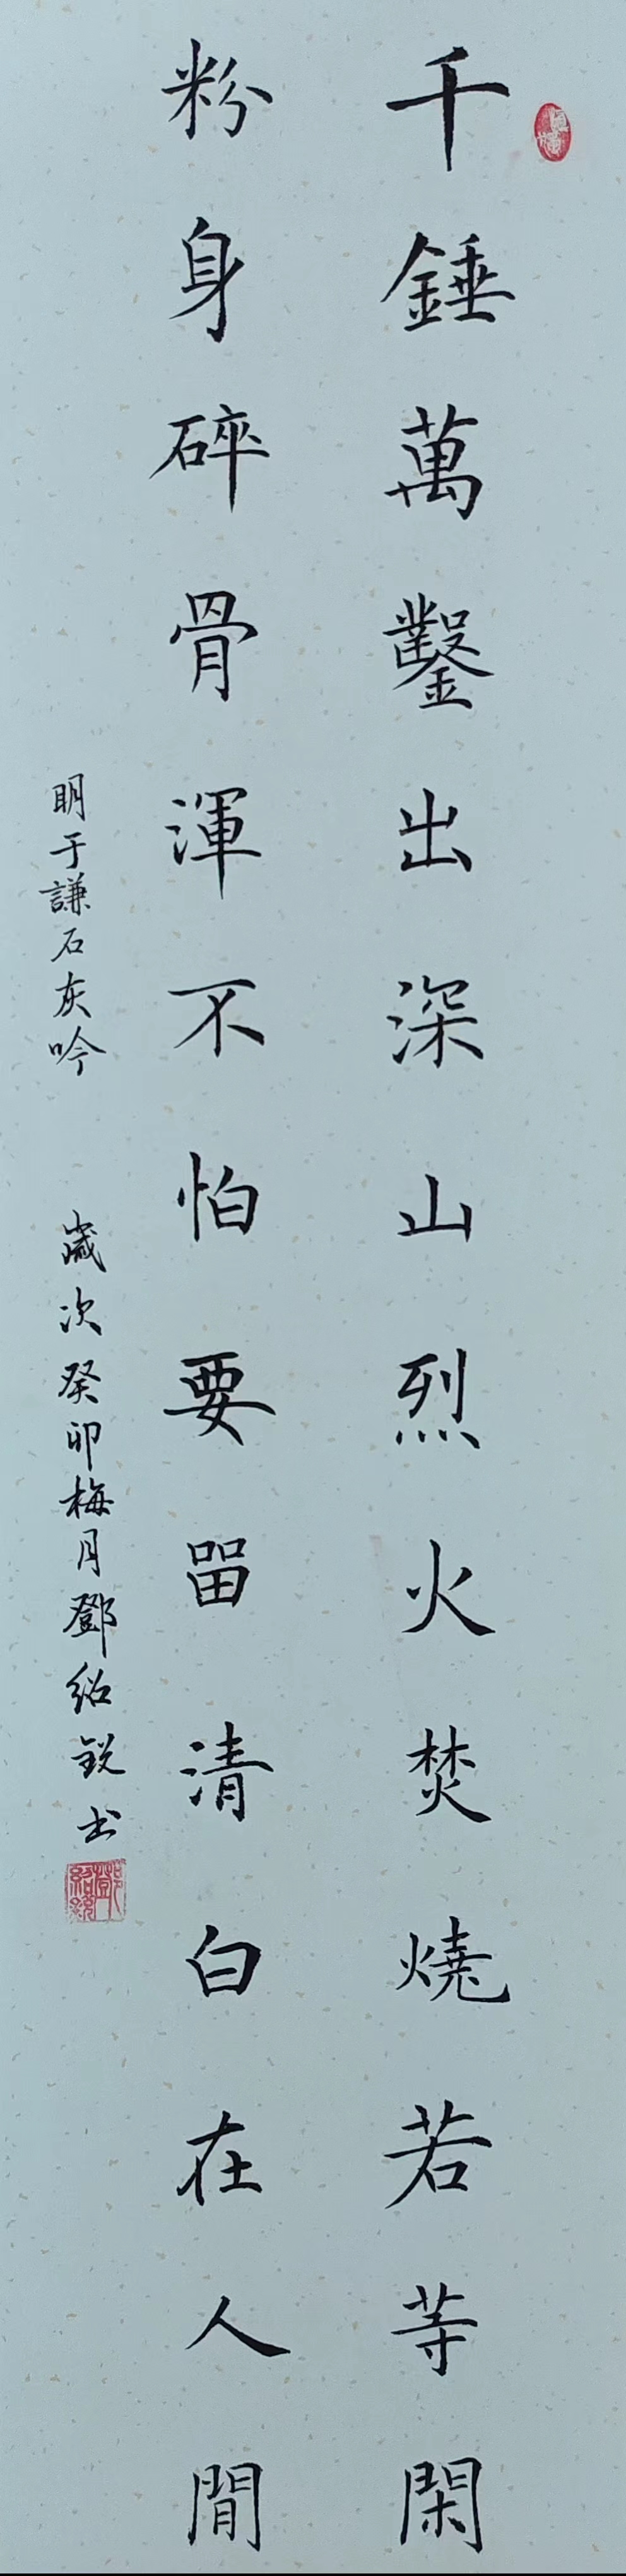 千錘萬鑿出深山烈火焚燒若等閑
粉身碎骨渾不怕要留清白在人間
明于謙石灰吟 歲次癸卯梅月鄧紹銳书
鄧紹銳